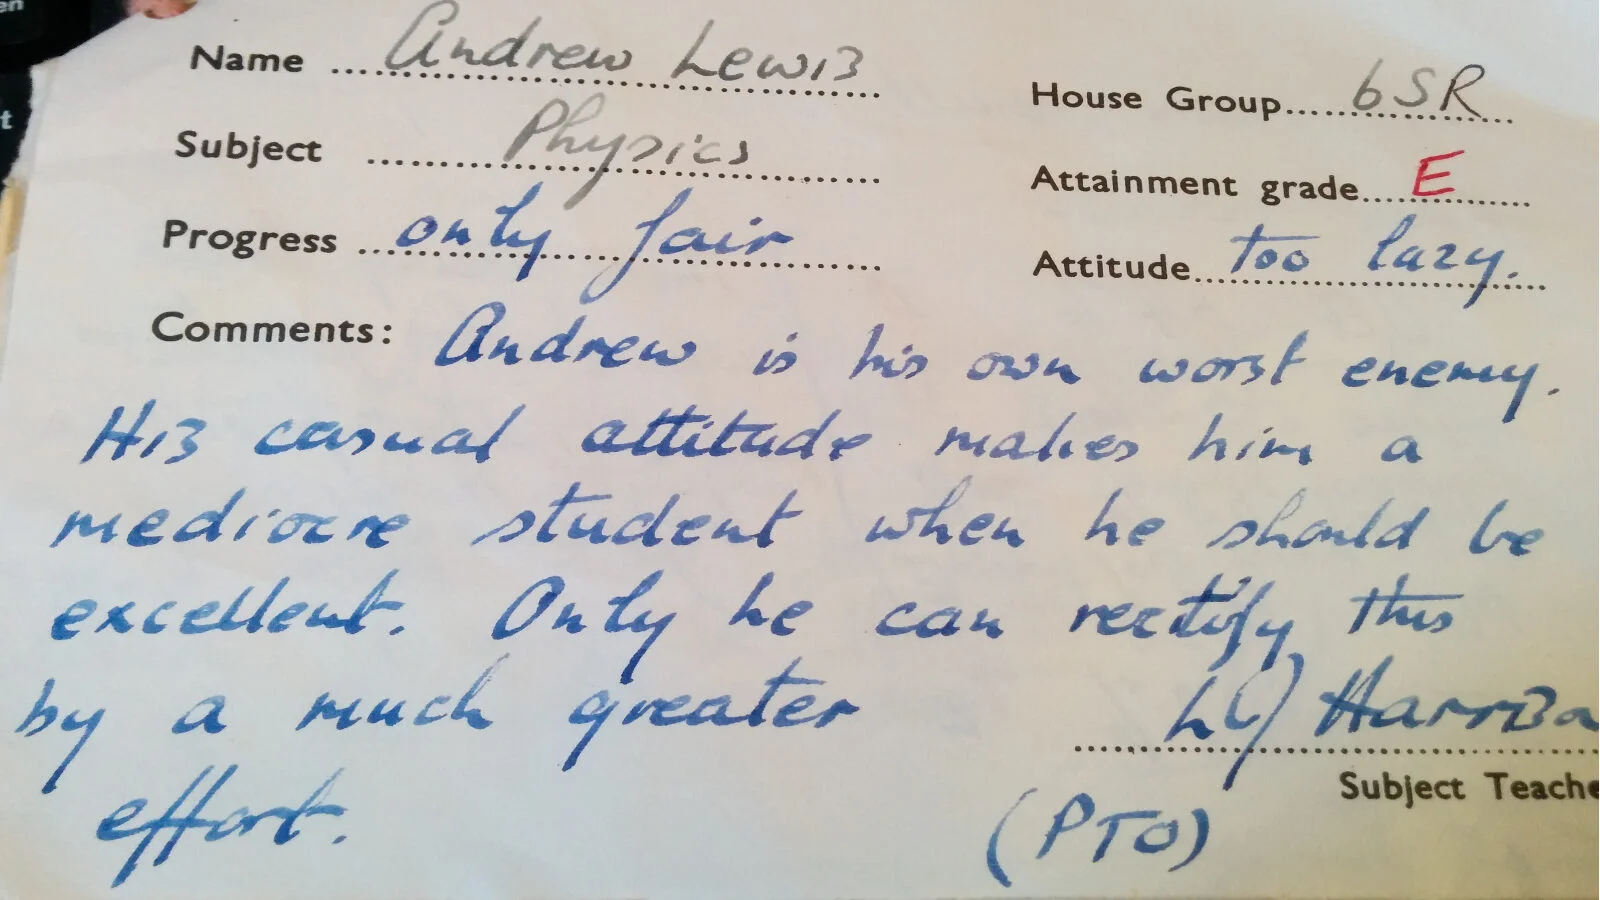 Name Andrew Lewis
House Group 6SR
Subject Physics
Attainment grade E
Progress only fair
Attitude too lazy.
Comments: Andrew is his own worst enemy.
His casual attitude makes him a
mediocre student when he should be
excellent. Only he can rectify this
by a much greater
effort.
Subject Teache
(PTO)